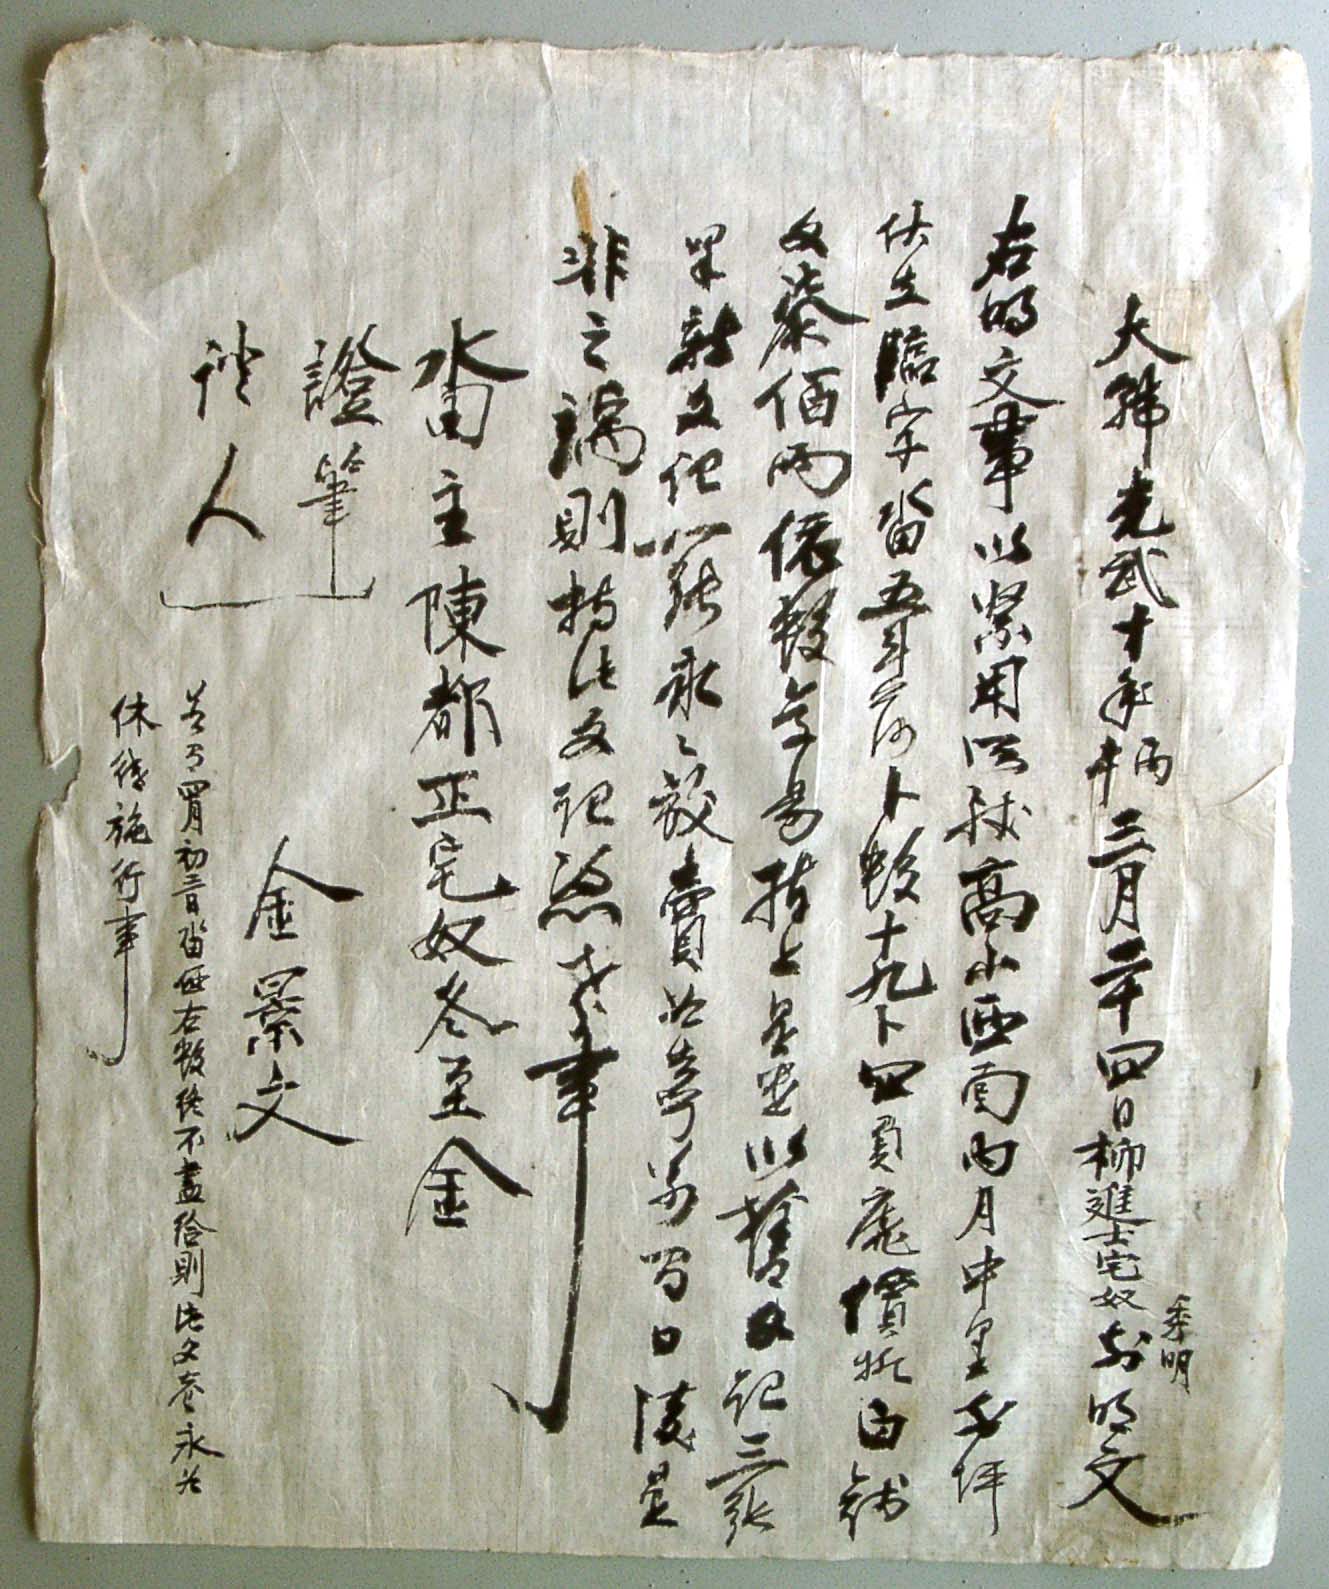 大韓光武十年丙午三月二十四日柳進士宅奴季明前明文
右明文事以緊用所致高山西面內月中里前坪
伏在臨字畓五斗落卜數十九卜四負庫價折白錢
文柒佰兩依數交易捧上是遣以舊文記三張
果新文記一張永永放賣爲去乎第日後是
非之端則持此文記憑考事
畓主陳都正宅奴冬至金
證筆
證人
金景文
若有四月初三日畓価右數終不盡給則此文卷永爲
休紙施行事